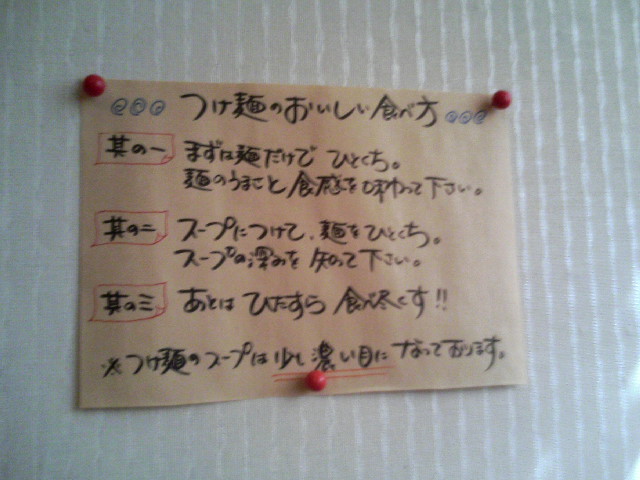 つけ麺のおいしい食べ方
其の一 まずは麺だけで ひとくち。
麺のうまさと食感を味わって下さい。
其の二 スープにつけて、麺をひとくち。
スープの深みを知って下さい。
其の三 あとは ひたすら 食べ尽くす!!
※つけ麺のスープは少し濃い目になっております。